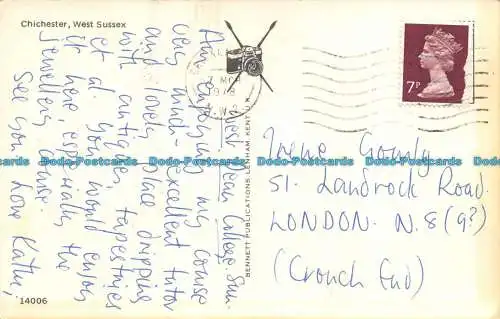 Chichester, West Sussex
West Dean College. Sun.
Am enjoying my course
very much – excellent tutor
and lovely place dripping
with antiques, tapestries
et al. You would enjoy
it here, especially the
jewellery course.
See you Love Kathy,
14006
BENNETT PUBLICATIONS, LENHAM, KENT, U.K.
7P
Irene Gormly
51. Landrock Road.
LONDON. N.8 (9?)
(Crouch End)
Dodo-Postcards Dodo-Postcards Dodo-Postcards Dodo-Postcards Dodo-Postcards